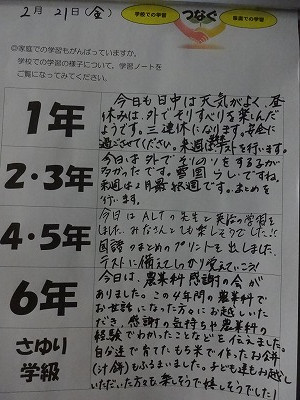 2月21日(金)
学校での学習
つなぐ
家庭での学習
◎家庭での学習もがんばっていますか。
学校での学習の様子について、学習ノートを
ご覧になってみてください。
1年
今日も日中は天気がよく、昼
休みは、外でそりすべりを楽しんだ
ようです。三連休になります。安全に
過ごさせてください。来週はテストを行います。
2・3年
今日は外でそりのりをする子が
多かったです。雪国らしいですね。
来週は2月最終週です。まとめを
行います。
4・5年
今日はALTの先生と英語の学習を
しました。みなさんとても楽しそうでした!!
国語のまとめのプリントを出しました。
テストに備えてしっかり覚えていこう!
6年
さゆり
学級
今日は、農業科感謝の会が
ありました。この4年間の農業科で
お世話になった方々にお越しいた
だき、感謝の気持ちや農業科の
経験でわかったことなどを伝えました。
自分達で育てたもち米で作ったお餅
(汁餅)もふるまいました。子ども達もお越し
いただいた方々も楽しそうで嬉しそうでした!